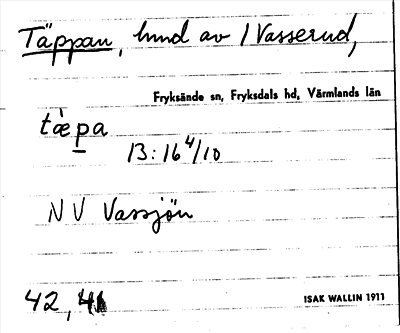 Täppan, hund av 1 Vasserud,
Fryksände sn, Fryksdals hd, Värmlands län
tæ̀pa
13:16 4/10
NV Vassjön
42, 41
ISAK WALLIN 1911